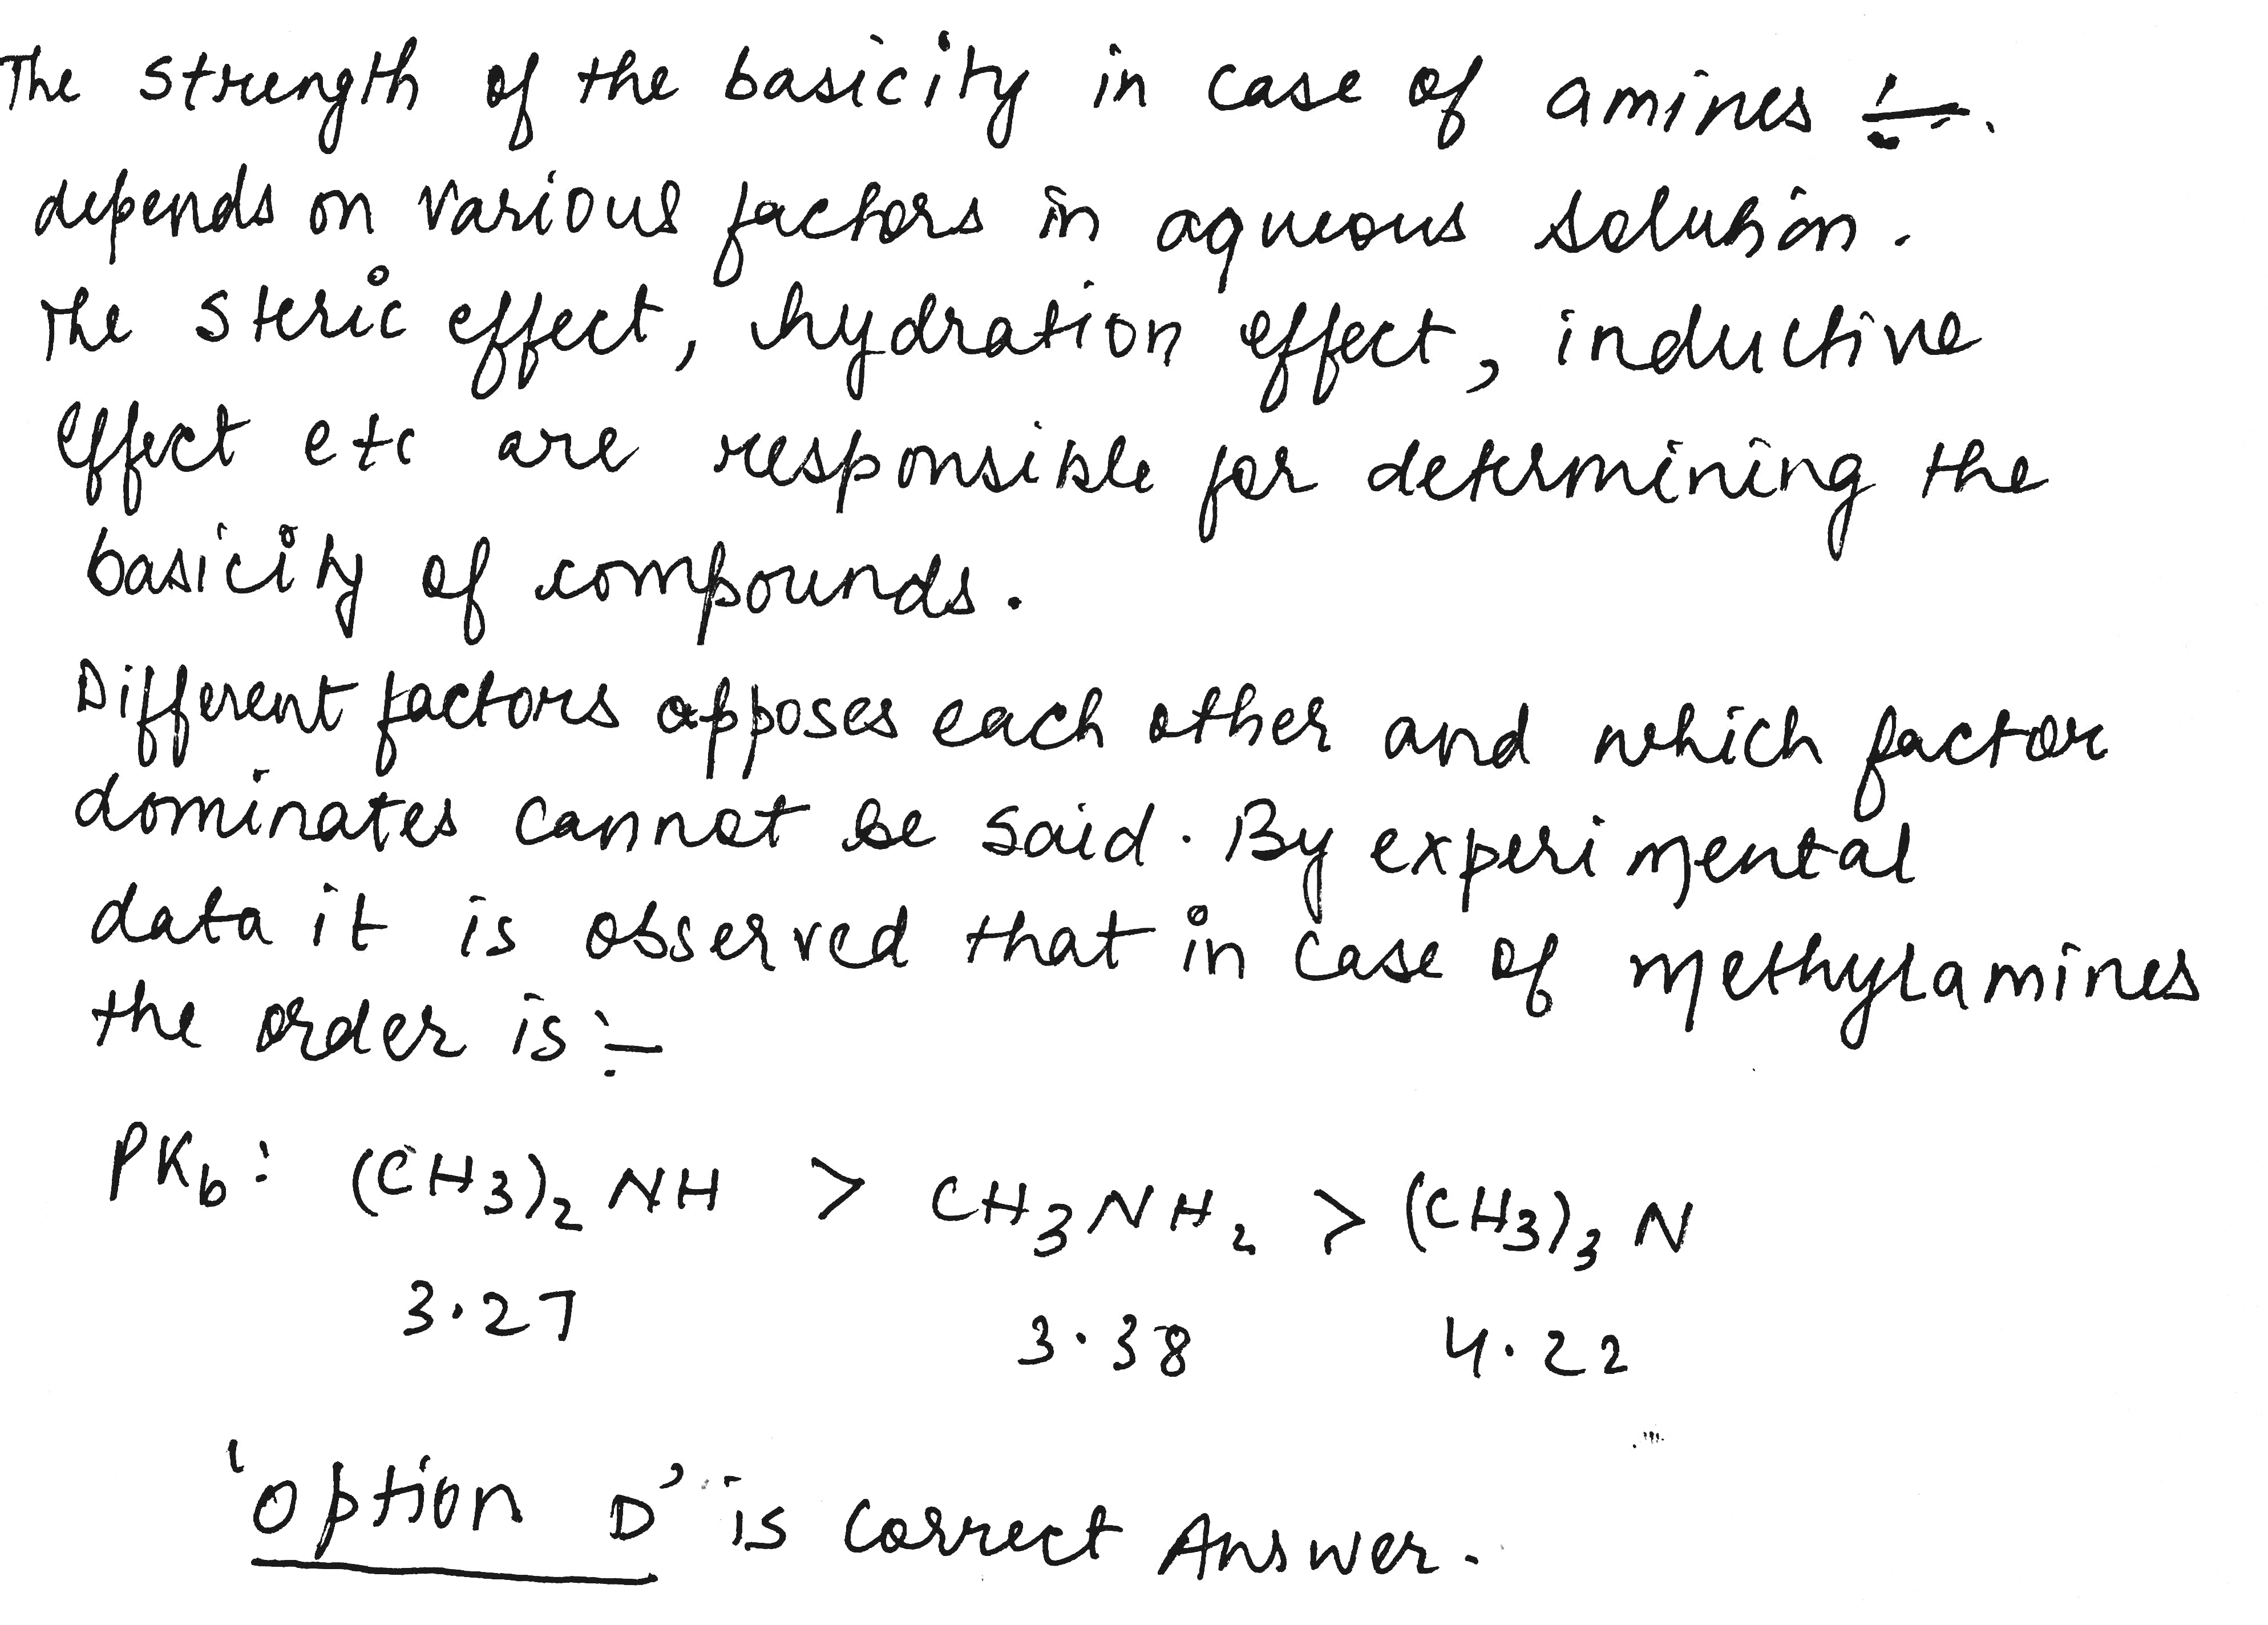 The strength of the basicity in case of amines :-
depends on various factors in aqueous solution.
The steric effect, hydration effect, inductive
effect etc are responsible for determining the
basicity of compounds.
Different factors opposes each other and which factor
dominates cannot be said. By experimental
data it is observed that in case of methylamines
the order is :-
PKb: (CH3)2 NH > CH3NH2 > (CH3)3 N
3.27 3.38 4.22
'option D' is correct Answer.